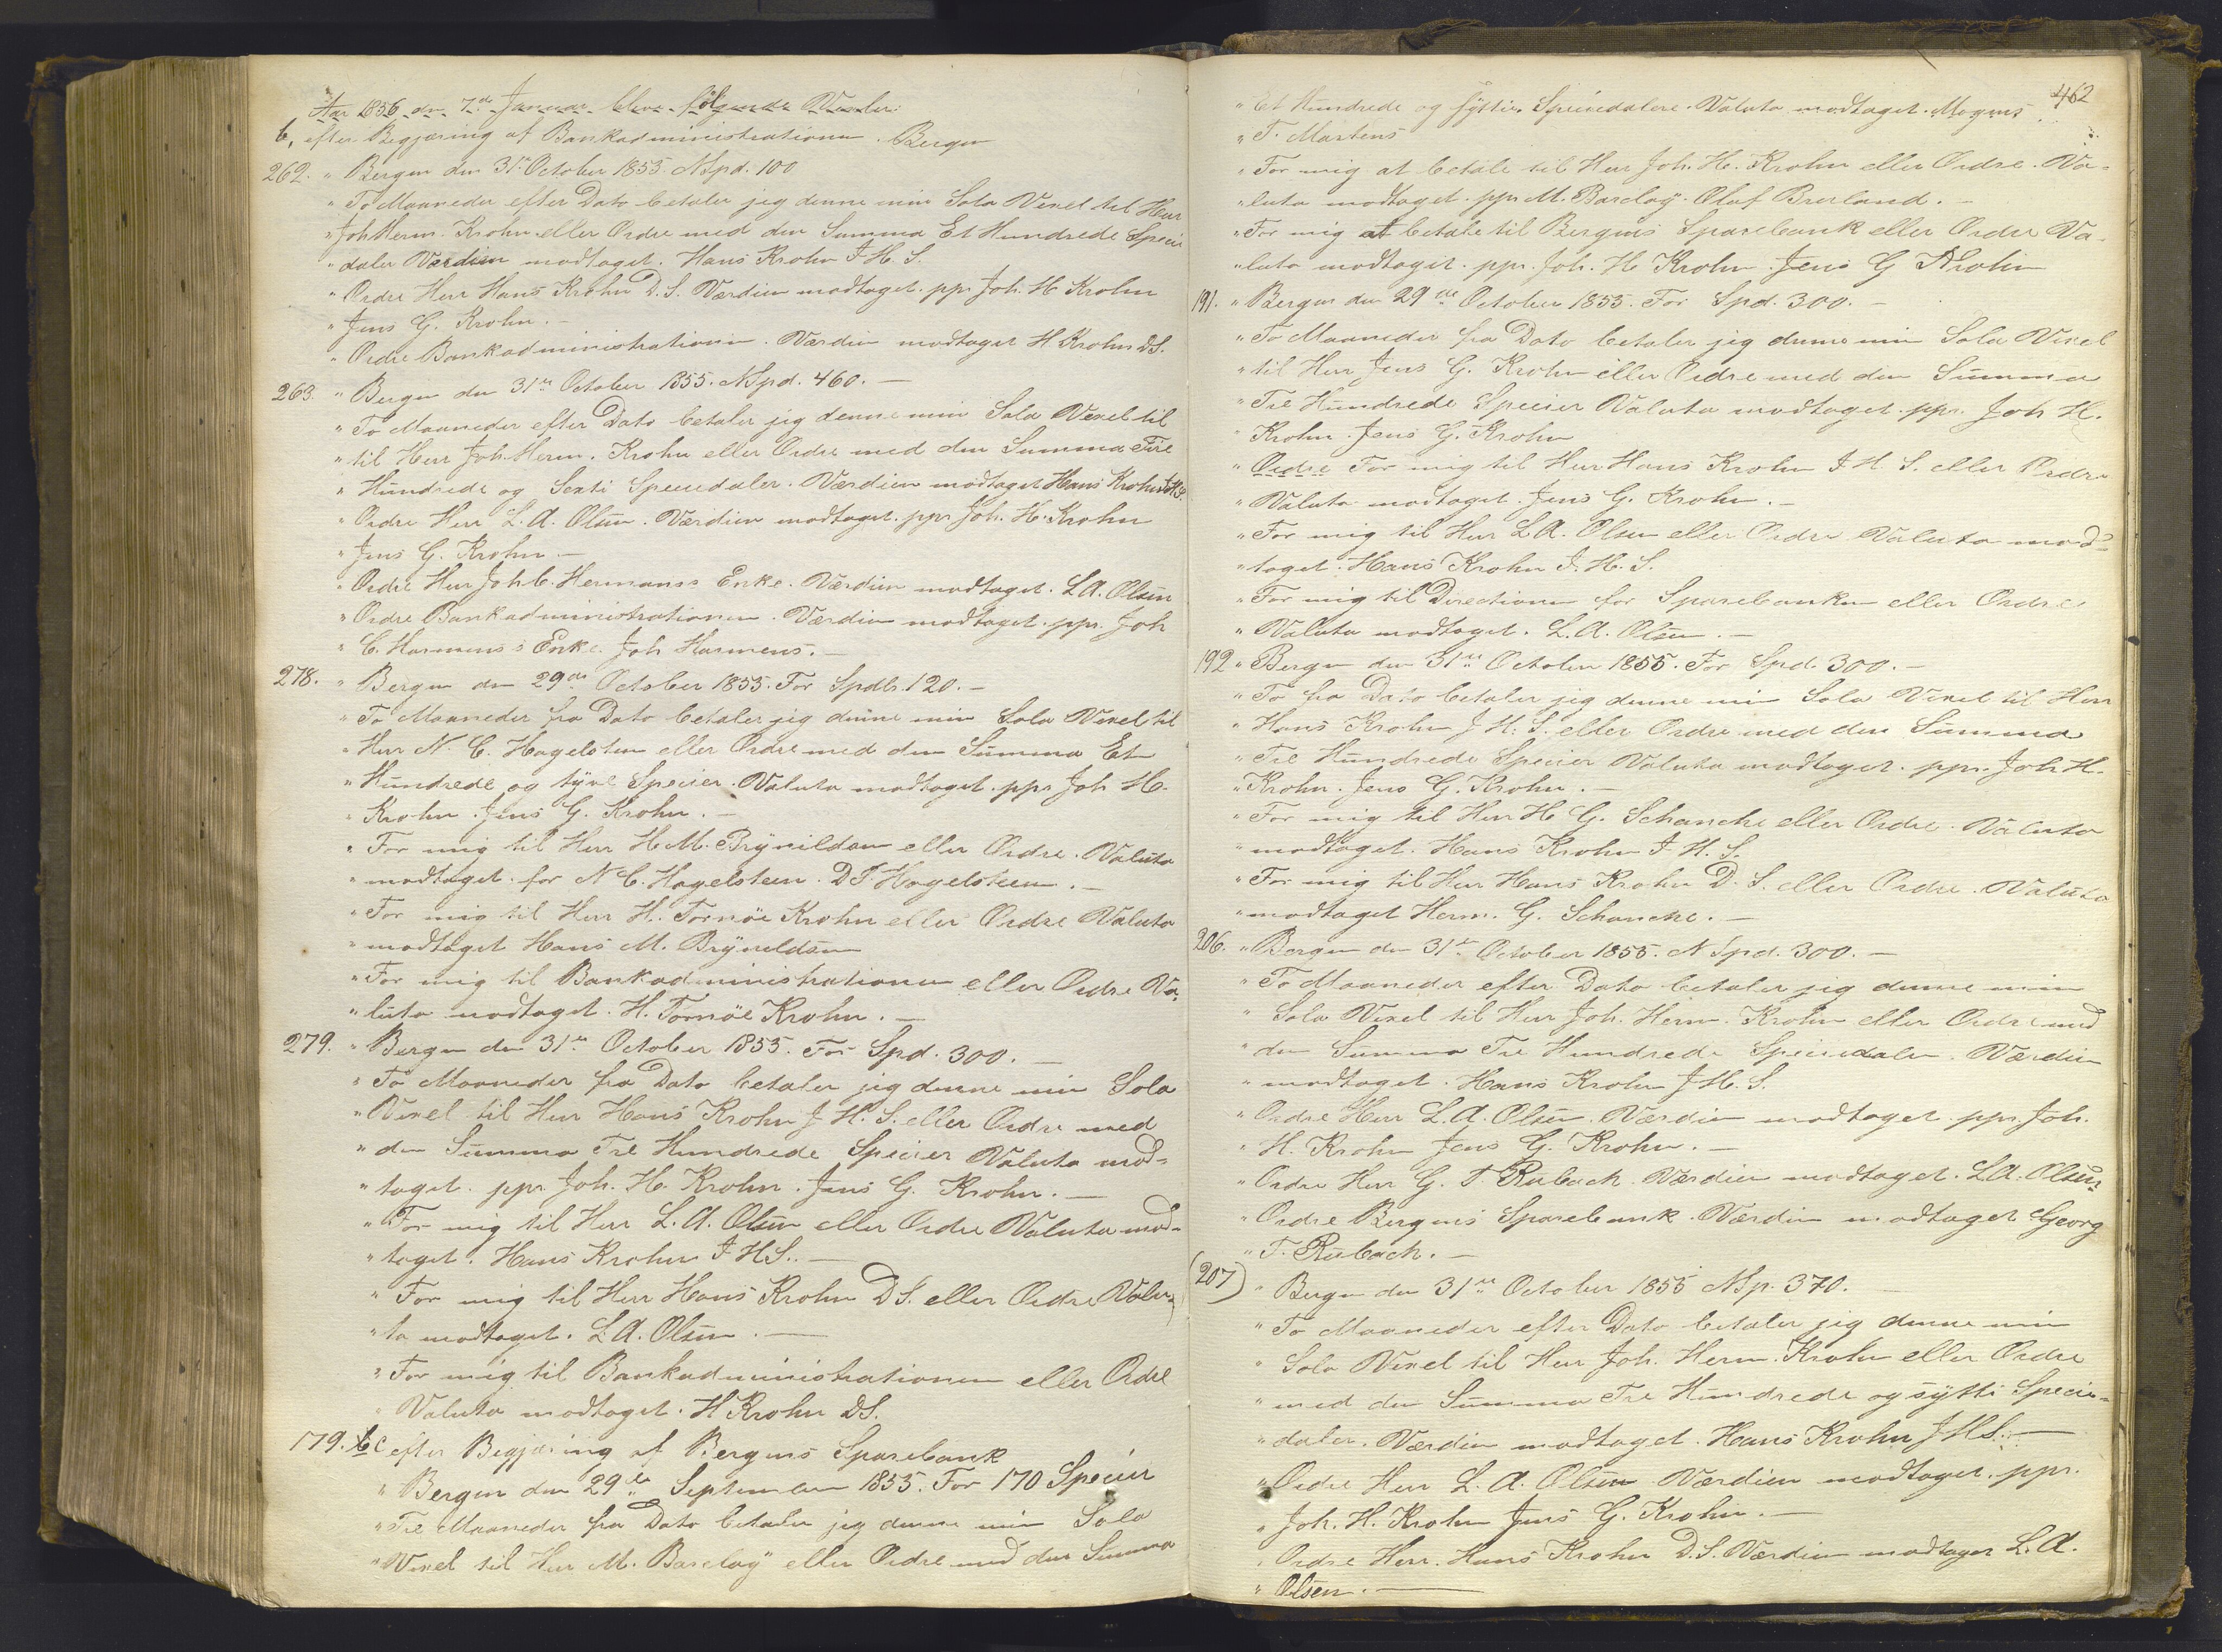 Aar 1856 den 7de Januar bleve følgende Vexler
b, efter Begjæring af Bankadministrationen. Bergen
262. " Bergen den 31te October 1855. NSpd. 100
" To Maaneder efter Dato betaler jeg denne min Sola Vexel til Herr
" Joh Herm. Krohn eller Ordre med den Summa Et Hundrede Specie
" daler Værdien modtaget. Hans Krohn J. H. S.
" Ordre Herr Hans Krohn D. S. Værdien modtaget. ppr Joh. H Krohn
" Jens G. Krohn. –
" Ordre Bankadministrationen. Værdien modtaget H Krohn DS.
263. " Bergen den 31te October 1855. NSpd. 460. –
" To Maaneder efter Dato betaler jeg denne min Sola Vexel til
" til Herr Joh. Herm. Krohn eller Ordre med den Summa Fire
" Hundrede og Sexti Speciedaler. Værdien modtaget Hans Krohn JHS
" Ordre Herr L. A. Olsen. Værdien modtaget. ppr Joh. H. Krohn
" Jens G. Krohn –
" Ordre Herr Joh C. Hermanss Enke. Værdien modtaget. L A. Olsen
" Ordre Bankadministrationen. Værdien modtaget. ppr. Joh
" C. Harmens's Enke. Joh Harmens. –
278. " Bergen den 29de October 1855. For Spdlr. 120. –
" To Maaneder fra Dato betaler jeg denne min Sola Vexel til
" Herr N. C. Hagelsteen eller Ordre med den Summa Et
" Hundrede og tyve Specier. Valuta modtaget. ppr Joh H.
" Krohn. Jens G. Krohn. –
" For mig til Herr H. M. Brynildsen eller Ordre. Valuta
" modtaget. for N C. Hagelsteen. D T Hagelsteen. –
" For mig til Herr H. Fornöe Krohn eller Ordre Valuta
" modtaget Hans M. Brynildsen
" For mig til Bankadministrationen eller Ordre Va-
" luta modtaget. H. Fornöe Krohn. –
279. " Bergen den 31te October 1855. For Spd. 300. –
" To Maaneder fra Dato betaler jeg denne min Sola
" Vexel til Herr Hans Krohn J. H. S. eller Ordre med
" den Summa Tre Hundrede Specier Valuta mod-
" taget. ppr. Joh. H. Krohn. Jens G. Krohn. –
" For mig til Herr L. A. Olsen eller Ordre Valuta mod-
" taget. Hans Krohn J. H S. –
" For mig til Herr Hans Krohn D S. eller Ordre Valu-
" ta modtaget. L A. Olsen. –
" For mig til Bankadministrationen eller Ordre
" Valuta modtaget. H Krohn DS.
179. c efter Begjæring af Bergens Sparebank
" Bergen den 29de September 1855. For 170 Specier
" Tre Maaneder fra Dato betaler jeg denne min Sola
" Vexel til Herr M. Barclay eller Ordre med den Summa
462
" Et Hundrede og sytti Speciedalere. Valuta modtaget. Mogens
" T. Martens
" For mig at betale til Herr Joh. H. Krohn eller Ordre. Va-
" luta modtaget. ppr M. Barclay. Olaf Bruland. –
" For mig at betale til Bergens Sparebank eller Ordre Va-
" luta modtaget. ppr. Joh. H Krohn. Jens G Krohn
191. " Bergen den 29de October 1855. For Spd. 300. –
" To Maaneder fra Dato betaler jeg denne min Sola Vexel
" til Herr Jens G. Krohn eller Ordre med den Summa
" Tre Hundrede Specier Valuta modtaget. ppr. Joh H.
" Krohn. Jens G. Krohn
" Ordre For mig til Herr Hans Krohn J H S. eller Ordre
" Valuta modtaget. Jens G. Krohn. –
" For mig til Herr L A. Olsen eller Ordre Valuta mod-
" taget. Hans Krohn J. H. S.
" For mig til Directionen for Sparebanken eller Ordre
" Valuta modtaget. L. A. Olsen. –
192 " Bergen den 31te October 1855. For Spd. 300. –
" To fra Dato betaler jeg denne min Sola Vexel til Herr
" Hans Krohn J H. S. eller Ordre med den Summa
" Tre Hundrede Specier Valuta modtaget. ppr. Joh H.
" Krohn. Jens G. Krohn. –
" For mig til Herr H G. Schancke eller Ordre. Valuta
" modtaget. Hans Krohn J. H. S.
" For mig til Herr Hans Krohn D. S. eller Ordre. Valuta
" modtaget Herm. G. Schancke. –
206. " Bergen den 31te October 1855. N Spd. 300. –
" To Maaneder efter Dato betaler jeg denne min
" Sola Vexel til Herr Joh. Herm. Krohn eller Ordre med
" den Summa Tre Hundrede Speciedaler. Værdien
" modtaget. Hans Krohn J H. S.
" Ordre Herr L. A. Olsen. Værdien modtaget. ppr. Joh.
" H. Krohn Jens G. Krohn. –
" Ordre Herr G. F. Rüback. Værdien modtaget. L A. Olsen
" Ordre Bergens Sparebank. Værdien modtaget Georg
" F. Rüback. –
(207) " Bergen den 31te October 1855 NSp. 370. –
" To Maaneder efter Dato betaler jeg denne min
" Sola Vexel til Herr Joh. Herm. Krohn eller Ordre
" med den Summa Tre Hundrede og sytti Specie-
" daler. Værdien modtaget. Hans Krohn J H S. –
" Ordre Herr L. A. Olsen Værdien modtaget. ppr.
" Joh. H. Krohn Jens G. Krohn. –
" Ordre Herr. Hans Krohn D. S. Værdien modtaget L. A.
" Olsen. –